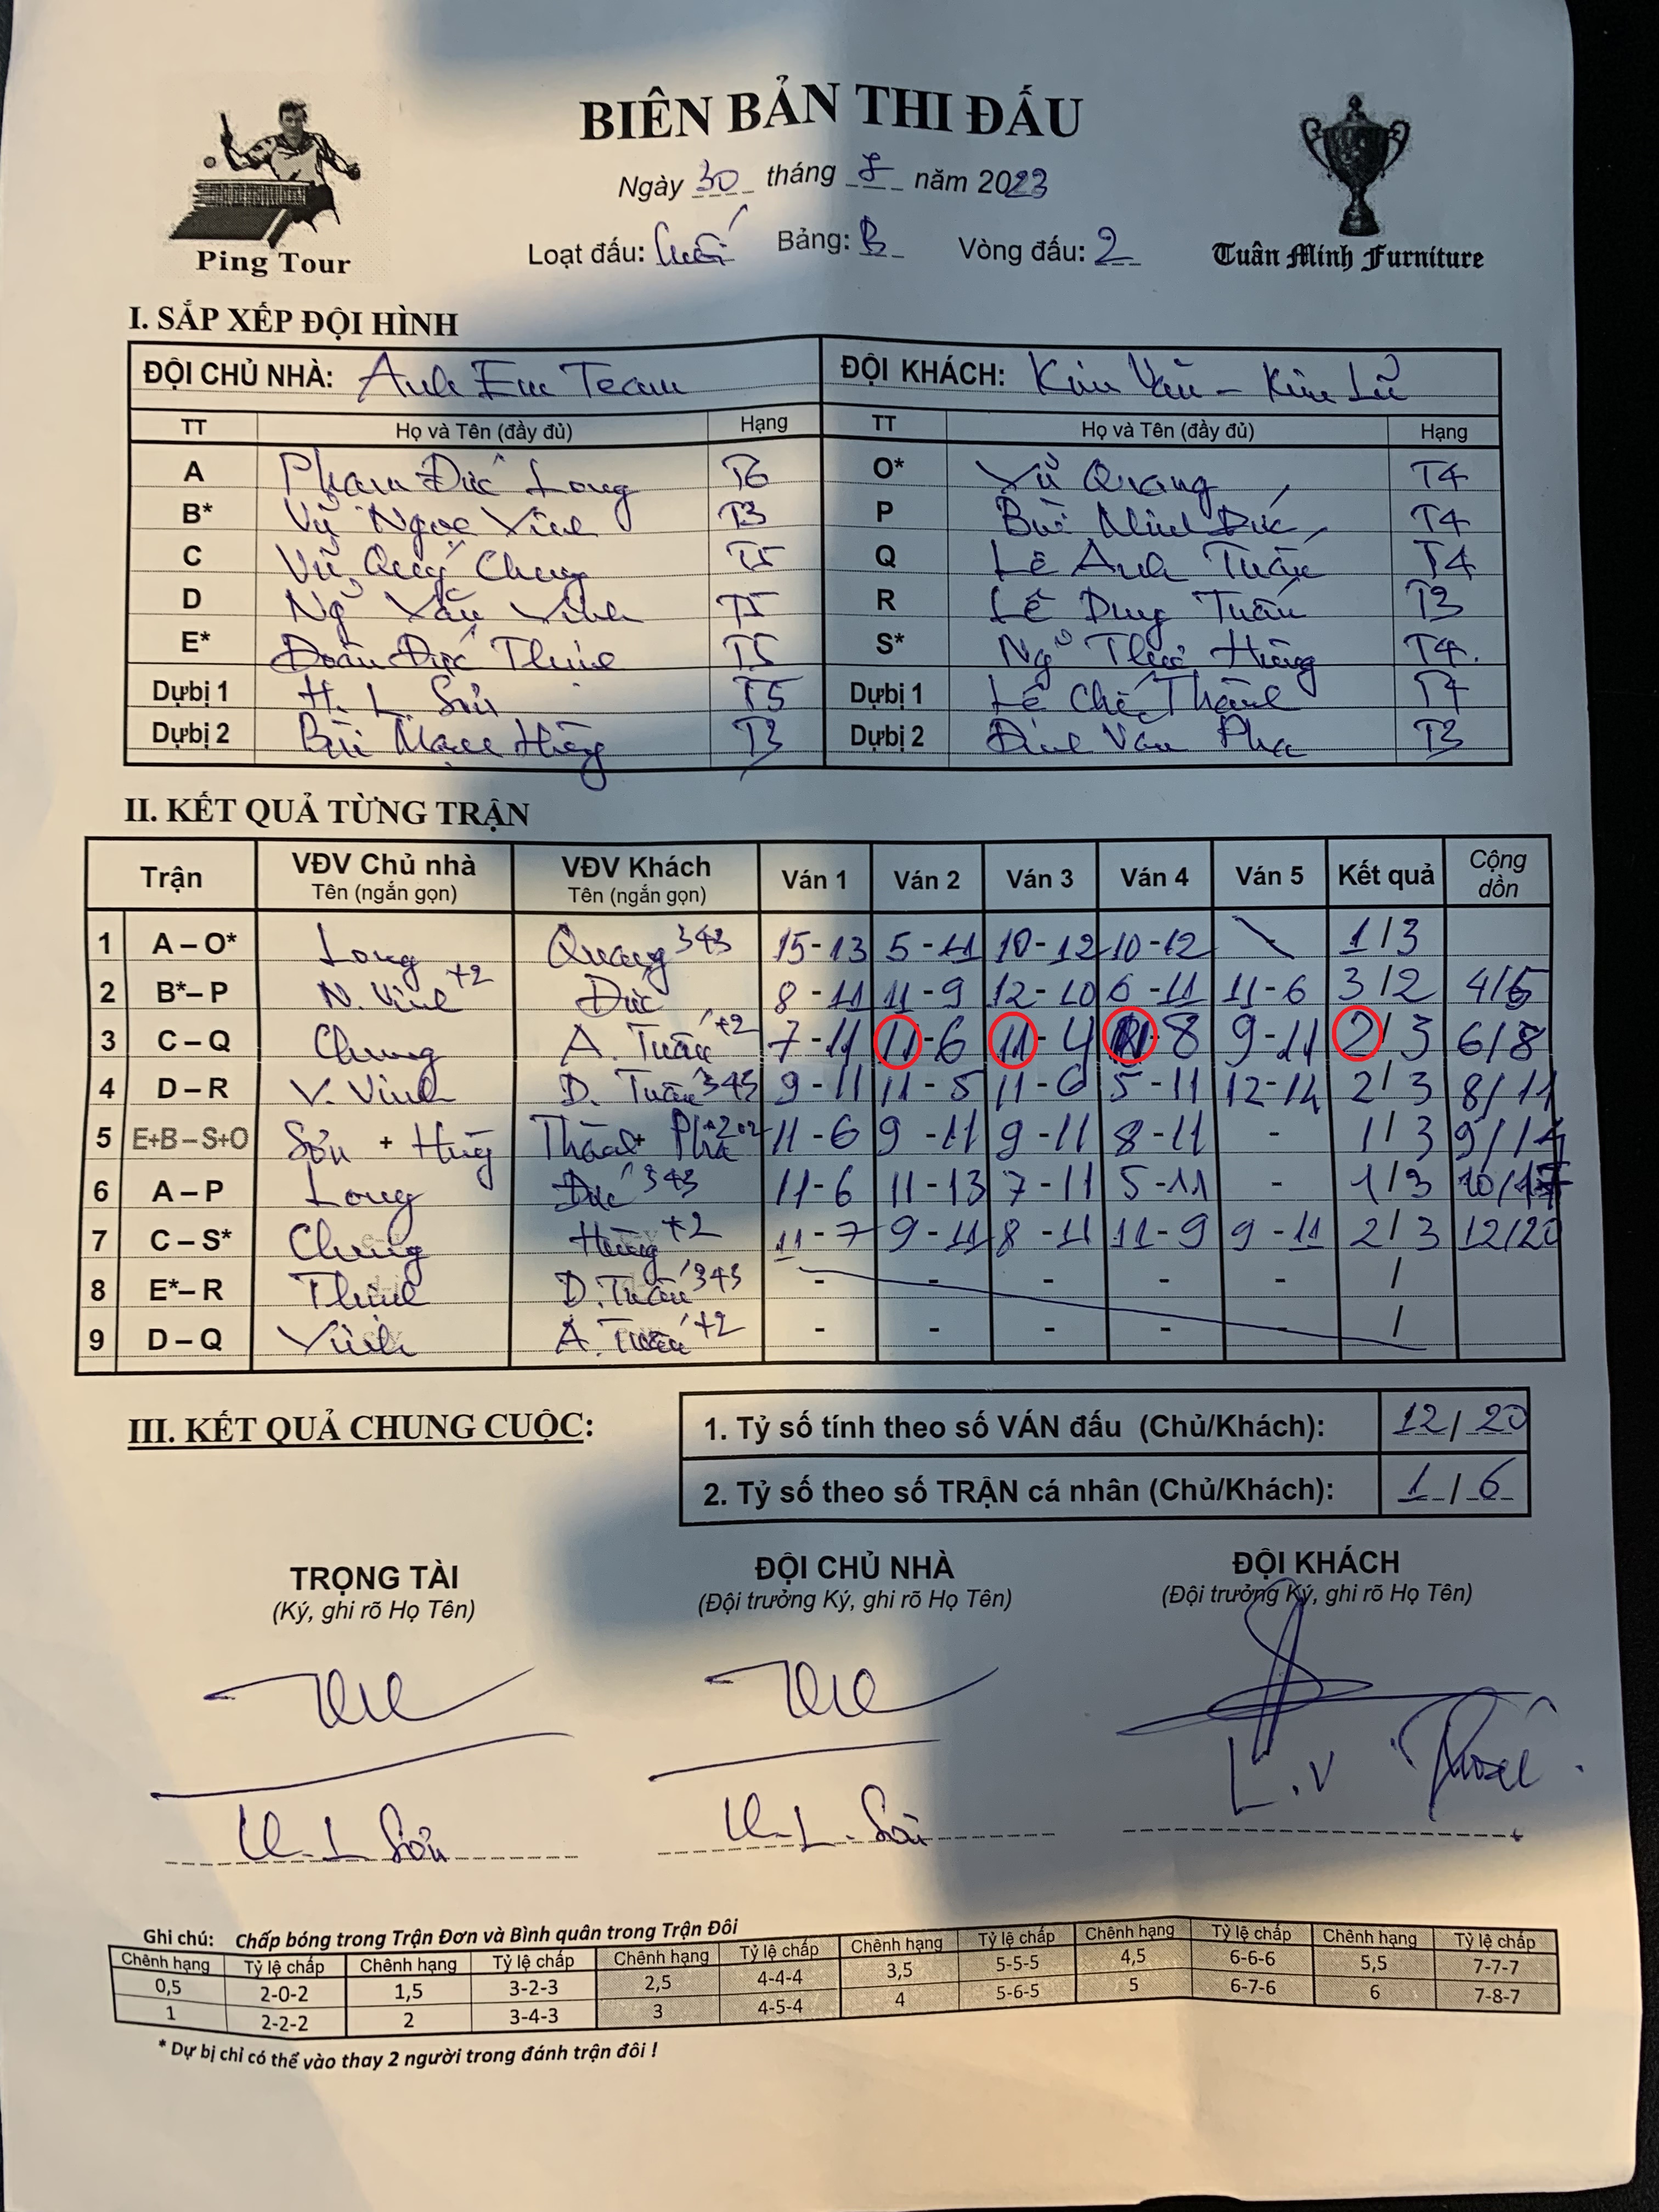 BIÊN BẢN THI ĐẤU
Ngày 30 tháng 8 năm 2023
Loạt đấu: Bảng: B Vòng đấu: 2
Ping Tour
Tuân Minh Furniture
I. SẮP XẾP ĐỘI HÌNH
ĐỘI CHỦ NHÀ: Anh Em Team ĐỘI KHÁCH: Kim Văn - Kim Lũ
TT Họ và Tên (đầy đủ) Hạng TT Họ và Tên (đầy đủ) Hạng
A Phạm Đức Long T6 O* Vũ Quang T4
B* Vũ Ngọc Vinh T3 P Bùi Minh Đức T4
C Vũ Quý Chung T5 Q Lê Anh Tuấn T4
D Ng Văn Vinh T5 R Lê Dung Tuấn T3
E* Đoàn Đức Thịnh T5 S* Ng Hùng T4.
Dự bị 1 H. L. Sơn T5 Dự bị 1 Lê Chế Thành T4
Dự bị 2 Bùi Mạnh Hùng T3 Dự bị 2 Đinh Văn Pha T3
II. KẾT QUẢ TỪNG TRẬN
Trận VĐV Chủ nhà Tên (ngắn gọn) VĐV Khách Tên (ngắn gọn) Ván 1 Ván 2 Ván 3 Ván 4 Ván 5 Kết quả Cộng dồn
1 A – O* Long Quang 343 15-13 5-11 10-12 10-12 \ 1/3
2 B*– P N. Vinh +2 Đức 8-11 11-9 12-10 6-11 11-6 3/2 4/5
3 C – Q Chung A. Tuấn +2 7-11 11-6 11-4 8 9-11 2/3 6/8
4 D – R V. Vinh D. Tuấn 343 9-11 11-5 11-6 5-11 12-14 2/3 8/11
5 E+B – S+O Sơn + Hùng Thành + Pha 202 11-6 9-11 9-11 8-11 - 1/3 9/14
6 A – P Long Đức 343 11-6 11-13 7-11 5-11 - 1/3 10/17
7 C – S* Chung Hùng +2 11-7 9-11 8-11 11-9 9-11 2/3 12/20
8 E*– R Thịnh D. Tuấn 343 - - - - - /
9 D – Q Vinh A. Tuấn +2 - - - - - /
III. KẾT QUẢ CHUNG CUỘC:
1. Tỷ số tính theo số VÁN đấu (Chủ/Khách): 12/20
2. Tỷ số theo số TRẬN cá nhân (Chủ/Khách): 1/6
TRỌNG TÀI ĐỘI CHỦ NHÀ ĐỘI KHÁCH
(Ký, ghi rõ Họ Tên) (Đội trưởng Ký, ghi rõ Họ Tên) (Đội trưởng Ký, ghi rõ Họ Tên)
L.V
H. L Sơn H. L. Sơn
Ghi chú: Chấp bóng trong Trận Đơn và Bình quân trong Trận Đôi
Chênh hạng Tỷ lệ chấp Chênh hạng Tỷ lệ chấp Chênh hạng Tỷ lệ chấp Chênh hạng Tỷ lệ chấp Chênh hạng Tỷ lệ chấp Chênh hạng Tỷ lệ chấp
0,5 2-0-2 1,5 3-2-3 2,5 4-4-4 3,5 5-5-5 4,5 6-6-6 5,5 7-7-7
1 2-2-2 2 3-4-3 3 4-5-4 4 5-6-5 5 6-7-6 6 7-8-7
* Dự bị chỉ có thể vào thay 2 người trong đánh trận đôi !